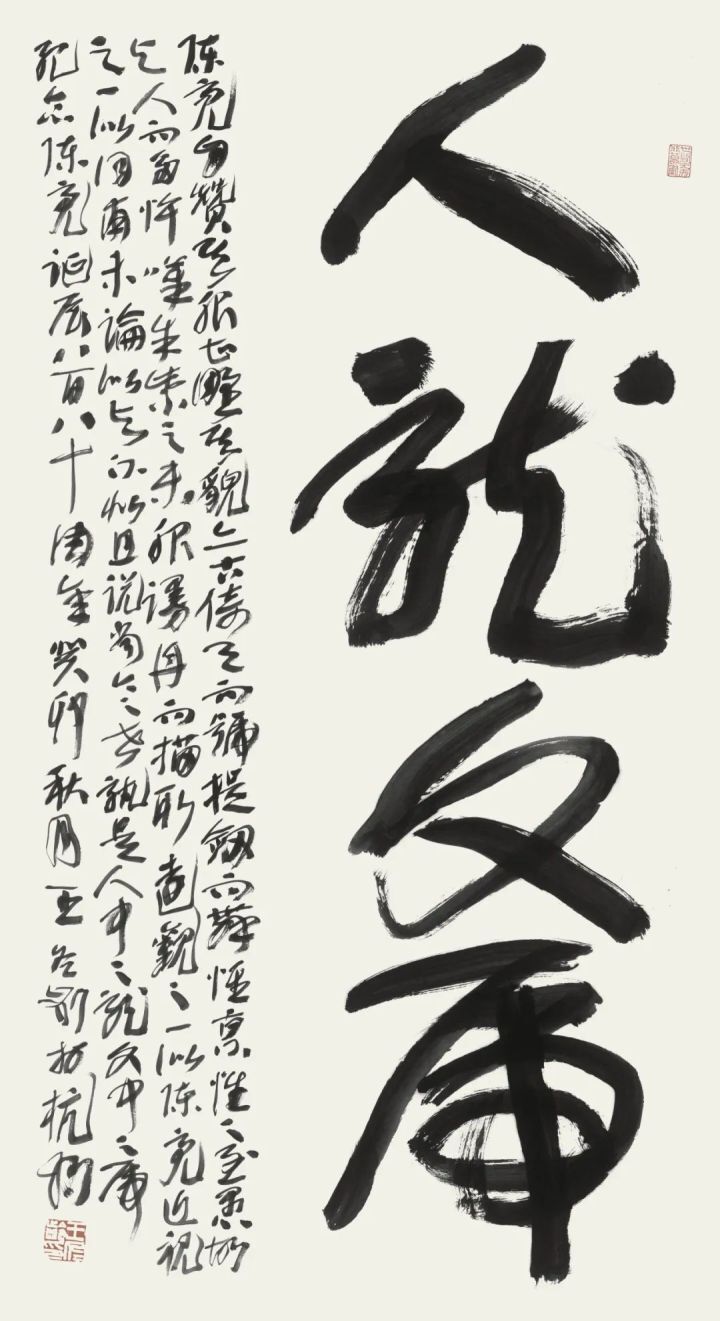 人龍文虎
陈亮自赞其服甚野其貌亦古倚天而號提劍而舞惟禀性之至愚故
与人而多忤嘆朱紫之未服谩丹而描取遠觀之一似陈亮近視
之一似同甫未論似与不似且说當今之世孰是人中之龍文中之虎
纪念陈亮诞辰八百八十周年癸卯秋月王冬齡於杭州